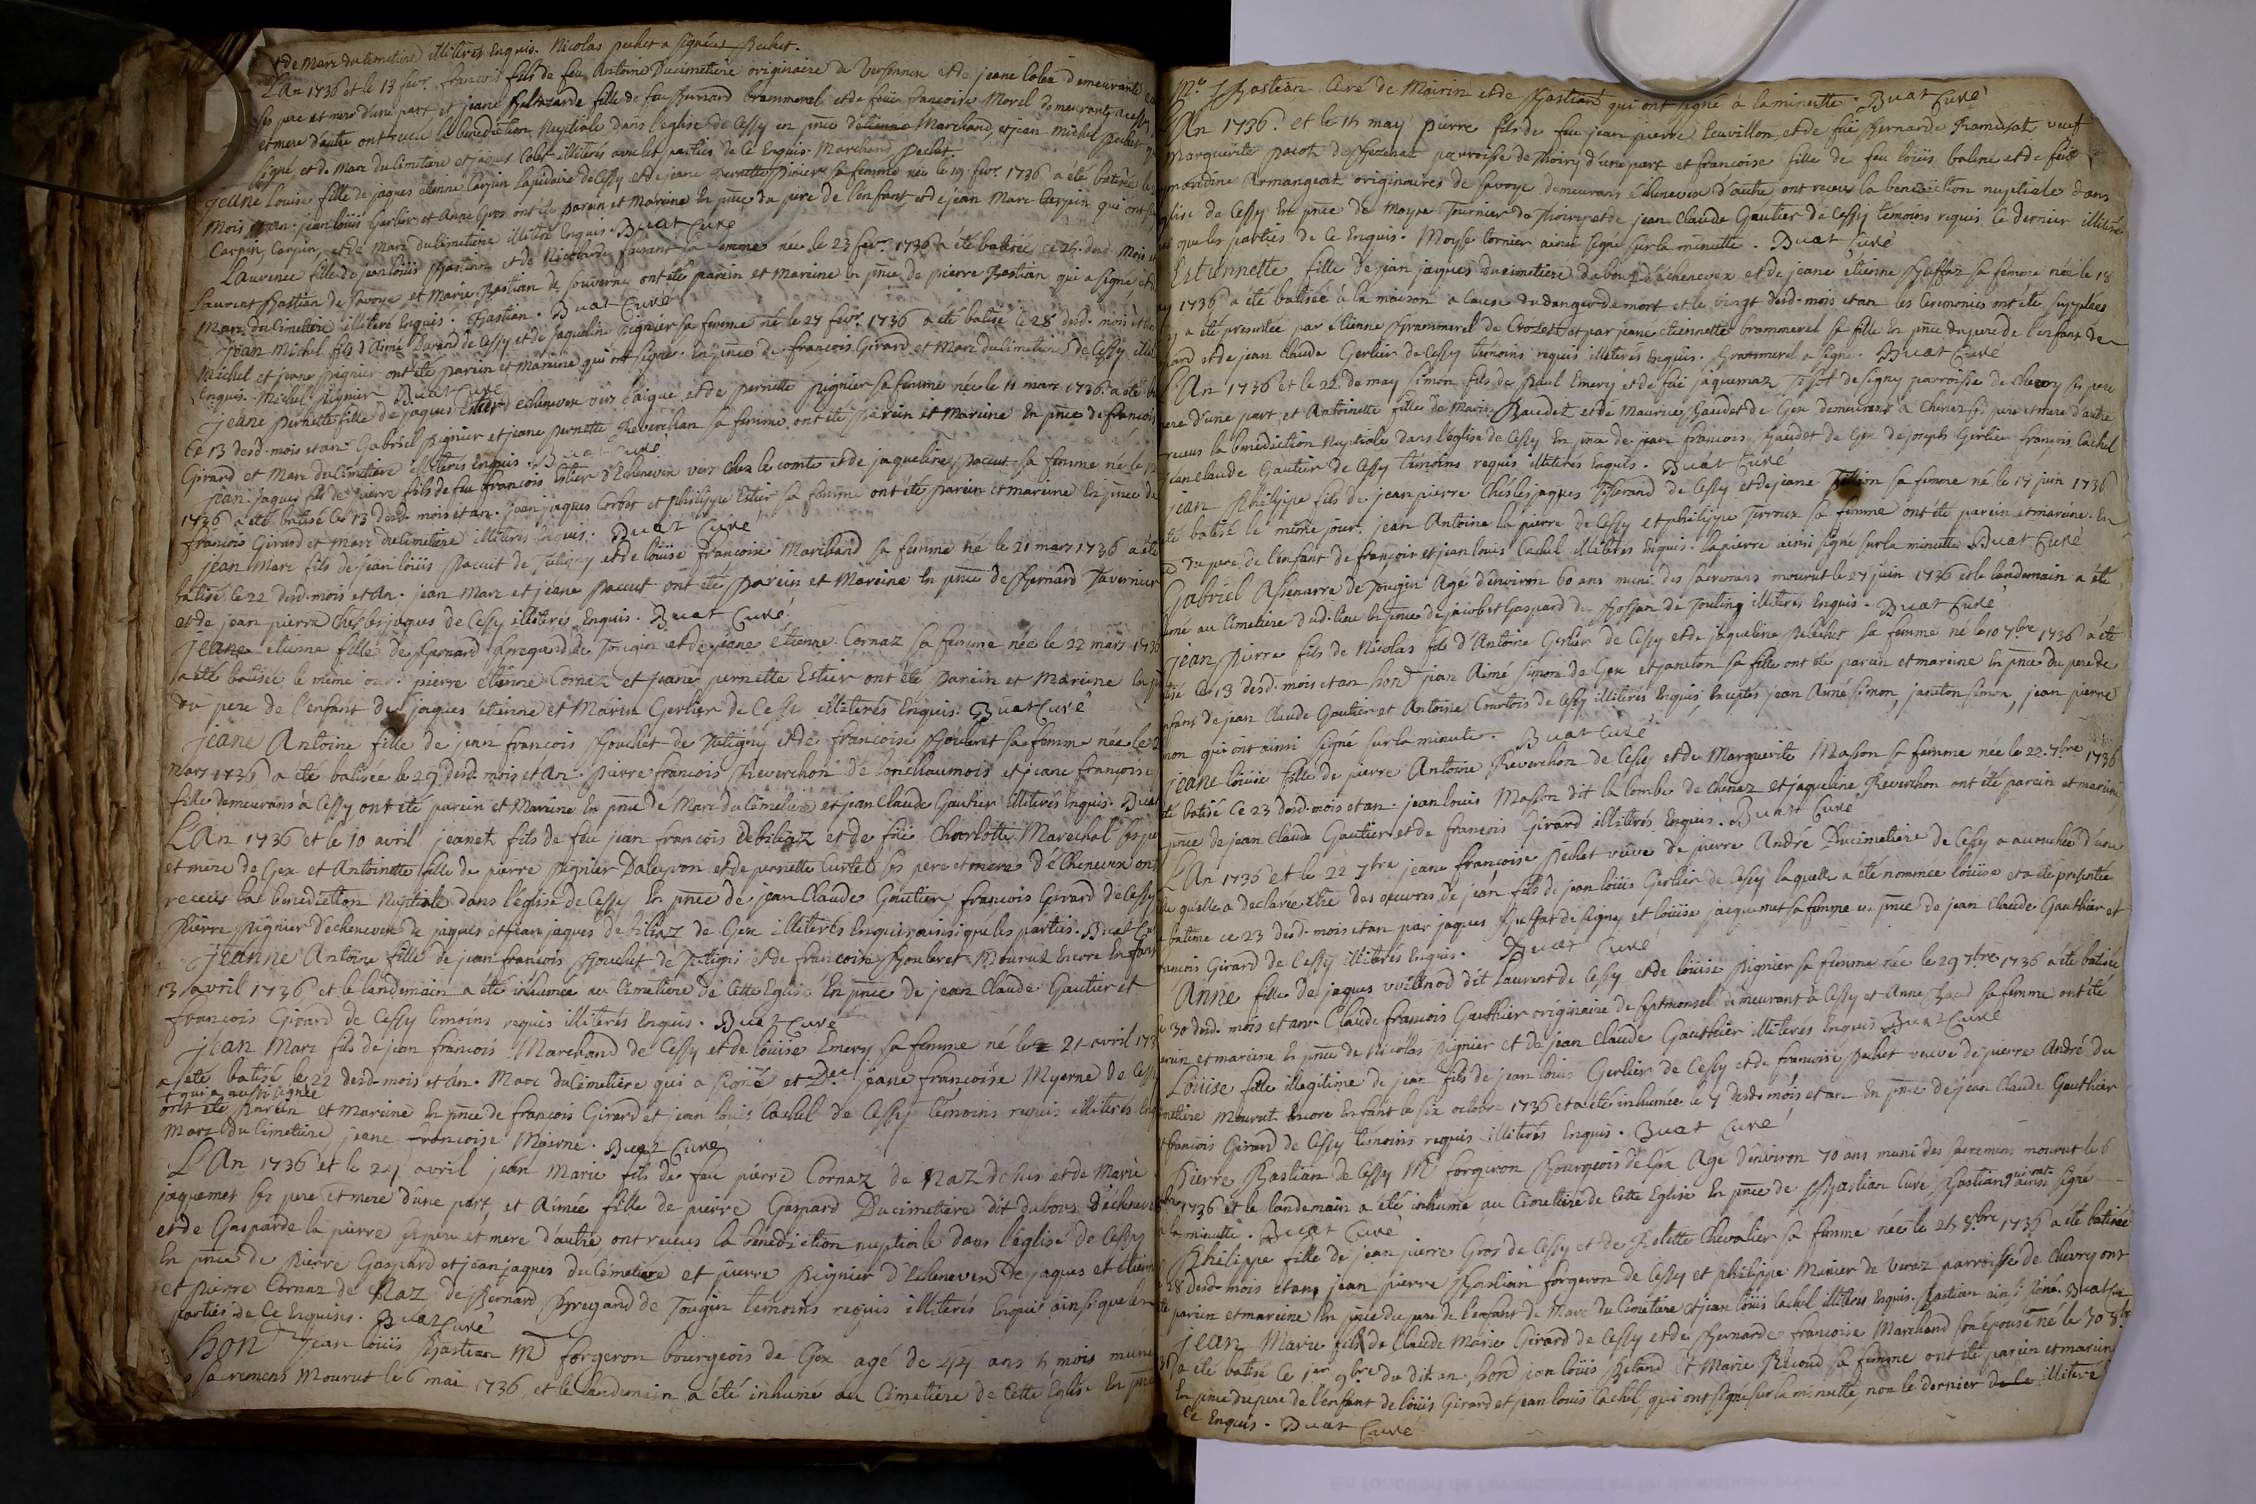 et de Marc du Cimetiere illiterés Enquis. Nicolas pechet a signé Pechet.
L'An 1736 et le 13 fevr. francois fils de feu Antoine Ducimetiere originaire de Versonnex et de jeane Colex demeurants
ses pere et mere d'une part, et jeane Baltazarde fille de feu Bernard brammerel et de feüe francoise Morel demeurants a Cessy
et mere d'autre ont receu la benediction Nuptiale dans l'eglise de Cessy en pnce d'etienne Marchand, et jean Michel pechet
signé et de Marc du Cimetiere et jaques Colet illiterés avec les parties de ce Enquis. Marchand pechet.
jeane Louise fille de jaques etienne Carpin Lapidaire de Cessy et de jeane pernette sa femme née le 19 fevr. 1736 a été batisée le
mois et an. jean loüis Gerlier et Anne Gros ont été parein et Mareine En pnce du pere de l'enfant et de jean Marc Carpin qui ont
Carpin, Carpin, et de Marc du Cimetiere illiteré Enquis. Buat Curé
Laurence fille de jean loüis Bastian et de Nicolarde sa femme née le 23 fevr. 1736 a été batisée ce 24 dud. Mois
Laurent Bastian de Savoye et Marie Bastian de Souvernex ont été parein et mareine En pnce de pierre Bastian qui a signé, et
Marc du Cimetiere illiteré Enquis. Bastian. Buat Curé
jean Michel fils d'Aimé Durand de Cessy et de jaqueline pignier sa femme né le 27 fevr. 1736 a été batisé le 28 dud. mois et an
Michel et jeane pignier ont été parein et mareine qui ont signé. En pnce de francois Girard et Marc du Cimetiere de Cessy
Enquis. Michel pignier Buat Curé
jeane pernette fille de jaques Estier d'echenevex vers l'aigue et de pernette pignier sa femme née le 11 mars 1736 a été
le 13 desd. mois et an Gabriel pignier et jeane pernette Reverchon sa femme ont été parein et Mareine En pnce de francois
Girard et Marc du Cimetiere illiterés Enquis. Buat Curé
jean jaques fils de pierre fils de feu francois Estier d'Echenevex vers Chez le comte et de jaqueline paccut sa femme né le 12
1736 a été batisé le 13 desd. mois et an. jean jaques Corbet et philippe Estier sa femme ont été parein et mareine En pnce de
francois Girard et Marc du Cimetiere illiterés Enquis. Buat Curé
jean Marc fils de jean loüis Paccut de Tutigny et de loüise francoise Marchand sa femme né le 21 mars 1736 a été
batisé le 22 desd. mois et An. jean Marc et jeane paccut ont été parein et Mareine En pnce de Bernard Tavernier
et de jean pierre Chés les jaques de Cessy illiterés Enquis. Buat Curé
jeane etienne fille de Bernard Bregand de Tougin et de jeane étienne Cornaz sa femme née le 22 mars 1736
a été batisée le même jour. pierre etienne Cornaz et jeane pernette Estier ont été parein et mareine En
du pere de l'enfant de jaques etienne et Marin Gerlier de Cessy illiterés Enquis. Buat Curé
jeane Antoine fille de jean francois Bouchet de Tutigny et de francoise Bouleret sa femme née le
mars 1736 a été batisée le 29 desd. mois et An. Pierre francois Reverchon de lonchaumois et jeane francoise
fille demeurans à Cessy ont été parein et Mareine En pnce de Marc du Cimetiere et jean Claude Gautier illiterés Enquis. Buat
L'An 1736 et le 10 avril jeanet fils de feu jean francois debiliaz et de feüe Charlotte Marechal ses pere
et mere de Gex et Antoinette fille de pierre pignier Daleyvon et de pernette Curtet ses pere et mere d'Echenevex ont
receus la benediction Nuptiale dans l'eglise de Cessy En pnce de jean Claude Gautier francois Girard de Cessy
Pierre pignier d'echenevex de jaques et jean jaques debiliaz de Gex illiterés Enquis ainsi que les parties. Buat Curé
jeanne Antoine fille de jean francois Bouchet de Tutigni et de francoise Bouleret Mourut Encore Enfant
13 avril 1736 et le landemain a été inhumée au Cimetiere de Cette Eglise En pnce de jean Claude Gautier et
francois Girard de Cessy témoins requis illiterés Enquis. Buat Curé
jean Marc fils de jean francois Marchand de Cessy et de loüise Emery sa femme né le 21 avril 173
a été batisé le 22 desd. mois et an. Marc du Cimetiere qui a signé et Dlle jeane francoise Myerne de Cessy
+ qui a aussi signée
ont été Parein et mareine En pnce de francois Girard et jean loüis Cachel de Cessy témoins requis illiterés Enq
Marc du Cimetiere jeane francoise Mayerne. Buat Curé
L'An 1736 et le 24 avril jean Marie fils de feu pierre Cornaz de Naz dessus et de Marie
jaquemet ses pere et mere d'une part, et Aimée fille de pierre Gaspard Ducimetiere dit dubois D'echenevex
et de Gasparde la pierre ses pere et mere d'autre ont receus la bénédiction nuptiale dans l'église de Cessy
En pnce de Pierre Gaspard et jean jaques du Cimetiere et pierre Pignier d'Echenevex de jaques et etienne
et pierre Cornaz de Naz de Bernard Bregand de Tougin témoins requis illiterés Enquis ainsi que les
parties de ce Enquises. Buat Curé
Hon. jean loüis Bastian Me forgeron bourgeois de Gex agé de 44 ans 4 mois muni
sacremens Mourut le 6 mai 1736, et le landemain a été inhumé au Cimetiere de Cette Eglise En pnce
Me Bastian Curé de Mairin et de Bastian qui ont signé à la minutte. Buat Curé
L'An 1736 et le 14 may pierre fils de feu jean pierre Levvillon, et de feüe Bernarde Framusat veuf
Marguerite pacot de parroisse de Thoiry d'une part et francoise fille de feu loüis balme et de feüe
mondine Armangeat originaires de Savoye demeurans Echenevex d'autre ont receus la benediction nuptiale dans
glise de Cessy En pnce de Moyse Tournier de Thoiry et de jean Claude Gautier de Cessy témoins requis le dernier illiteré
si que les parties de ce Enquis. Moyse tornier ainsi signé sur la minutte. Buat Curé
Estiennette fille de jean jaques Ducimetiere dubois d'echenevex et de jeane étienne Buffaz sa femme née le 18
may 1736 a été batisée à la maison a Cause du danger de mort et le vingt desd. mois et an les Ceremonies ont été supplées
a été presentée par étienne Brammerel de Crozet et par jeane etiennette brammerel sa fille En pnce du pere de l'enfant de
ard et de jean Claude Gerlier de Cessy témoins requis illiterés Enquis. Brammerel a signé. Buat Curé
L'An 1736 et le 22 de may simon fils de Paul Emery et de feüe jaquemaz Tissot de segny parroisse de Chevry ses pere
mere d'une part, et Antoinette fille de Marie Baudet et de Maurice Gaudet de Gex demeurant a Chenaz ses pere et mere d'autre
receus la benediction Nuptiale dans l'eglise de Cessy En pnce de jean francois Gaudet de Gex de joseph Gerlier francois Cachel
jean Claude Gautier de Cessy témoins requis illiterés Enquis. Buat Curé
jean Philippe fils de jean pierre Chés les jaques Tisserand de Cessy et de jeane sa femme né le 17 juin 1736
été batisé le même jour. jean Antoine la pierre de Cessy et philippe Terroux sa femme ont été parein et mareine. En
ce du pere de l'enfant de francois et jean louis Cachel illiterés Enquis. lapierre ainsi signé sur la minutte Buat Curé
Gabriel Assenarre de Tougin Agé d'environ 60 ans muni des sacremens mourut le 27 juin 1736 et le landemain a été
umé au Cimetiere dud. lieu En pnce de jacob et Gaspard du Bosson de Touting illiterés Enquis. Buat Curé
jean Pierre fils de Nicolas fils d'Antoine Gerlier de Cessy et de jaqueline Pelichet sa femme né le 10 7bre 1736 a été
tisé ce 13 desd. mois et an hond. jean Aimé simon de Gex et janeton sa fille ont été parein et mareine En pnce du pere de
nfant de jean Claude Gautier et Antoine Crurtois de Cessy illiterés Enquis, Exceptés jean Aimé Simon, janeton Simon, jean pierre
mon qui ont ainsi signé sur la minute. Buat Curé
jeane loüise fille de pierre Antoine Reverchon de Cessy et de Marguerite Masson sa femme née le 22 7bre 1736
té batisé ce 23 desd. mois et an. jean louis Masson dit la Combe de Chenaz et jaqueline Reverchon ont été parein et mareine
pnce de jean Claude Gautier et de francois Girard illiterés Enquis. Buat Curé
L'An 1736 et le 22 7bre jeane francoise Pechet veuve de pierre André Ducimetiere de Cessy a accouchée d'une
lle qu'elle a declarée être des oeuvres de jean fils de jean loüis Gerlier de Cessy laquelle a été nommée loüise et a été presentée
batême ce 23 desd. mois et an par jaques Buffat de segny et loüise jacquemet sa femme en pnce de jean Claude Gauthier et
francois Girard de Cessy illiterés Enquis. Buat Curé
Anne fille de jaques vuilliénod dit Laurent de Cessy et de loüise pignier sa femme née le 29 7bre 1736 a été batisée
le 30 desd. mois et an. Claude francois Gauthier originaire de Septmonsel demeurant à Cessy et Anne sa femme ont été
arein et mareine En pnce de Nicolas pignier et de jean Claude Gauthier illiterés Enquis Buat Curé
Loüise fille illegitime de jean fils de jean louis Gerlier de Cessy et de francoise Pechet veuve de pierre André du
metiere Mourut Encore Enfant le six octobre 1736 et a été inhumée le 7 desd. mois et an En pnce de jean Claude Gauthier
et francois Girard de Cessy témoins requis illiterés Enquis. Buat Curé
Pierre Bastian de Cessy Me forgeron Bourgeois de Gex Agé d'environ 70 ans muni des sacremens mourut le 6
bre 1736 et le landemain a été inhumé au Cimetiere de Cette Eglise En pnce de Bastian Curé Bastian qui ont ainsi signé
à la minutte. Buat Curé
Philippe fille de jean pierre Gros de Cessy et de Rolette Chevalier sa femme née le 24 8bre 1736 a été batisée
28 desd. mois et an, jean pierre Bastian forgeron de Cessy et philippe Munier de Veraz parroisse de Chevry ont
parein et mareine En pnce du pere de l'enfant de Marc du Cimetiere et jean loüis Cachel illiterés Enquis. Bastian ainsi signé. Buat Curé
Jean Marie fils de Claude Marie Girard de Cessy et de Bernarde francoise Marchand son épouse né le 30 8bre
36 a été batisé ce 1er 9bre du dit an, hond jean loüis Reland et Marie Ricoud sa femme ont été parein et marein
En pnce du pere de l'enfant de loüis Girard et jean louis Cachel, qui ont signé sur la minutte, non le dernier de ce illiteré
de ce Enquis. Buat Curé